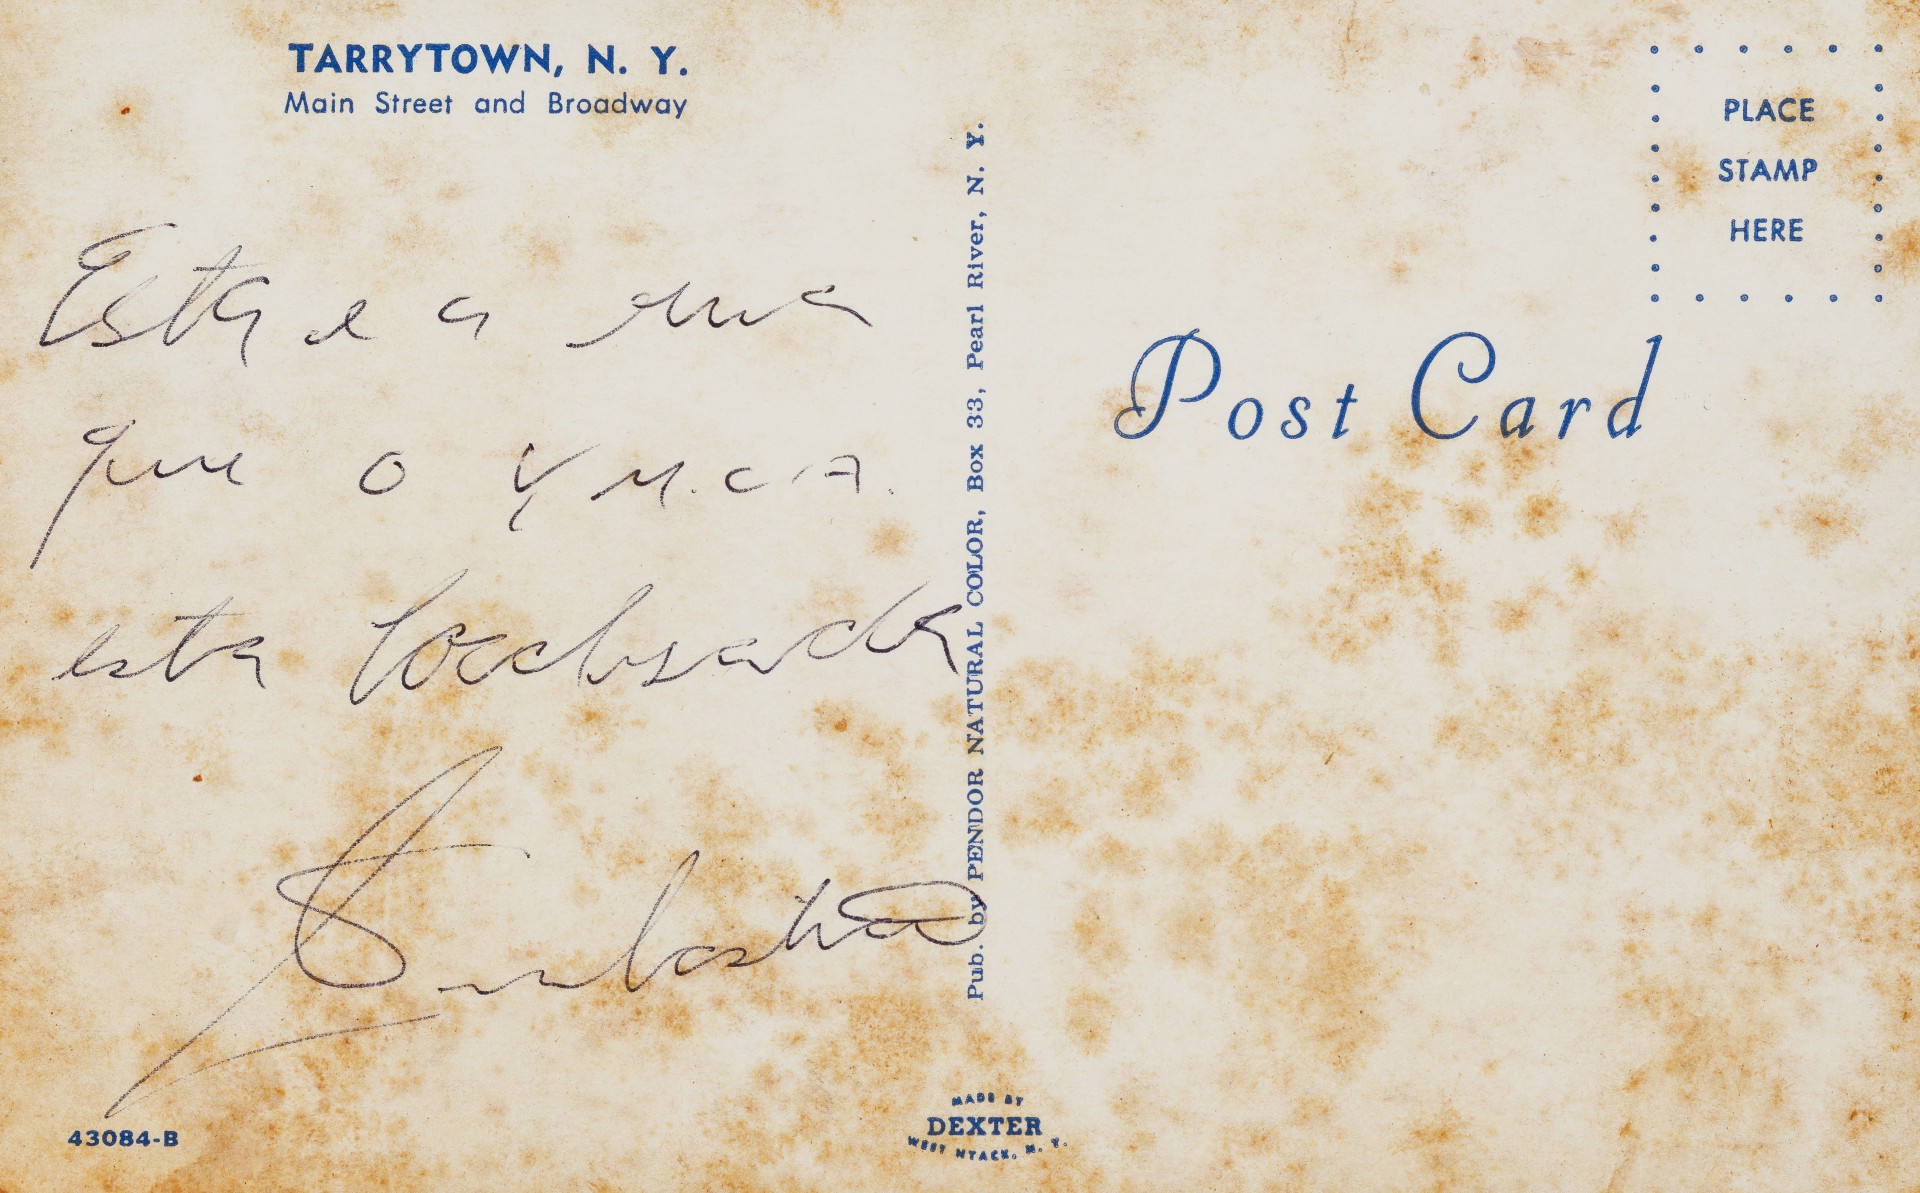 TARRYTOWN, N. Y.
Main Street and Broadway
Esta e a rua
que o Y.M.C.A.
esta localisada
43084-B
Pub. by PENDOR NATURAL COLOR, Box 33, Pearl River, N. Y.
MADE BY
DEXTER
WEST NYACK, N. Y.
PLACE
STAMP
HERE
Post Card